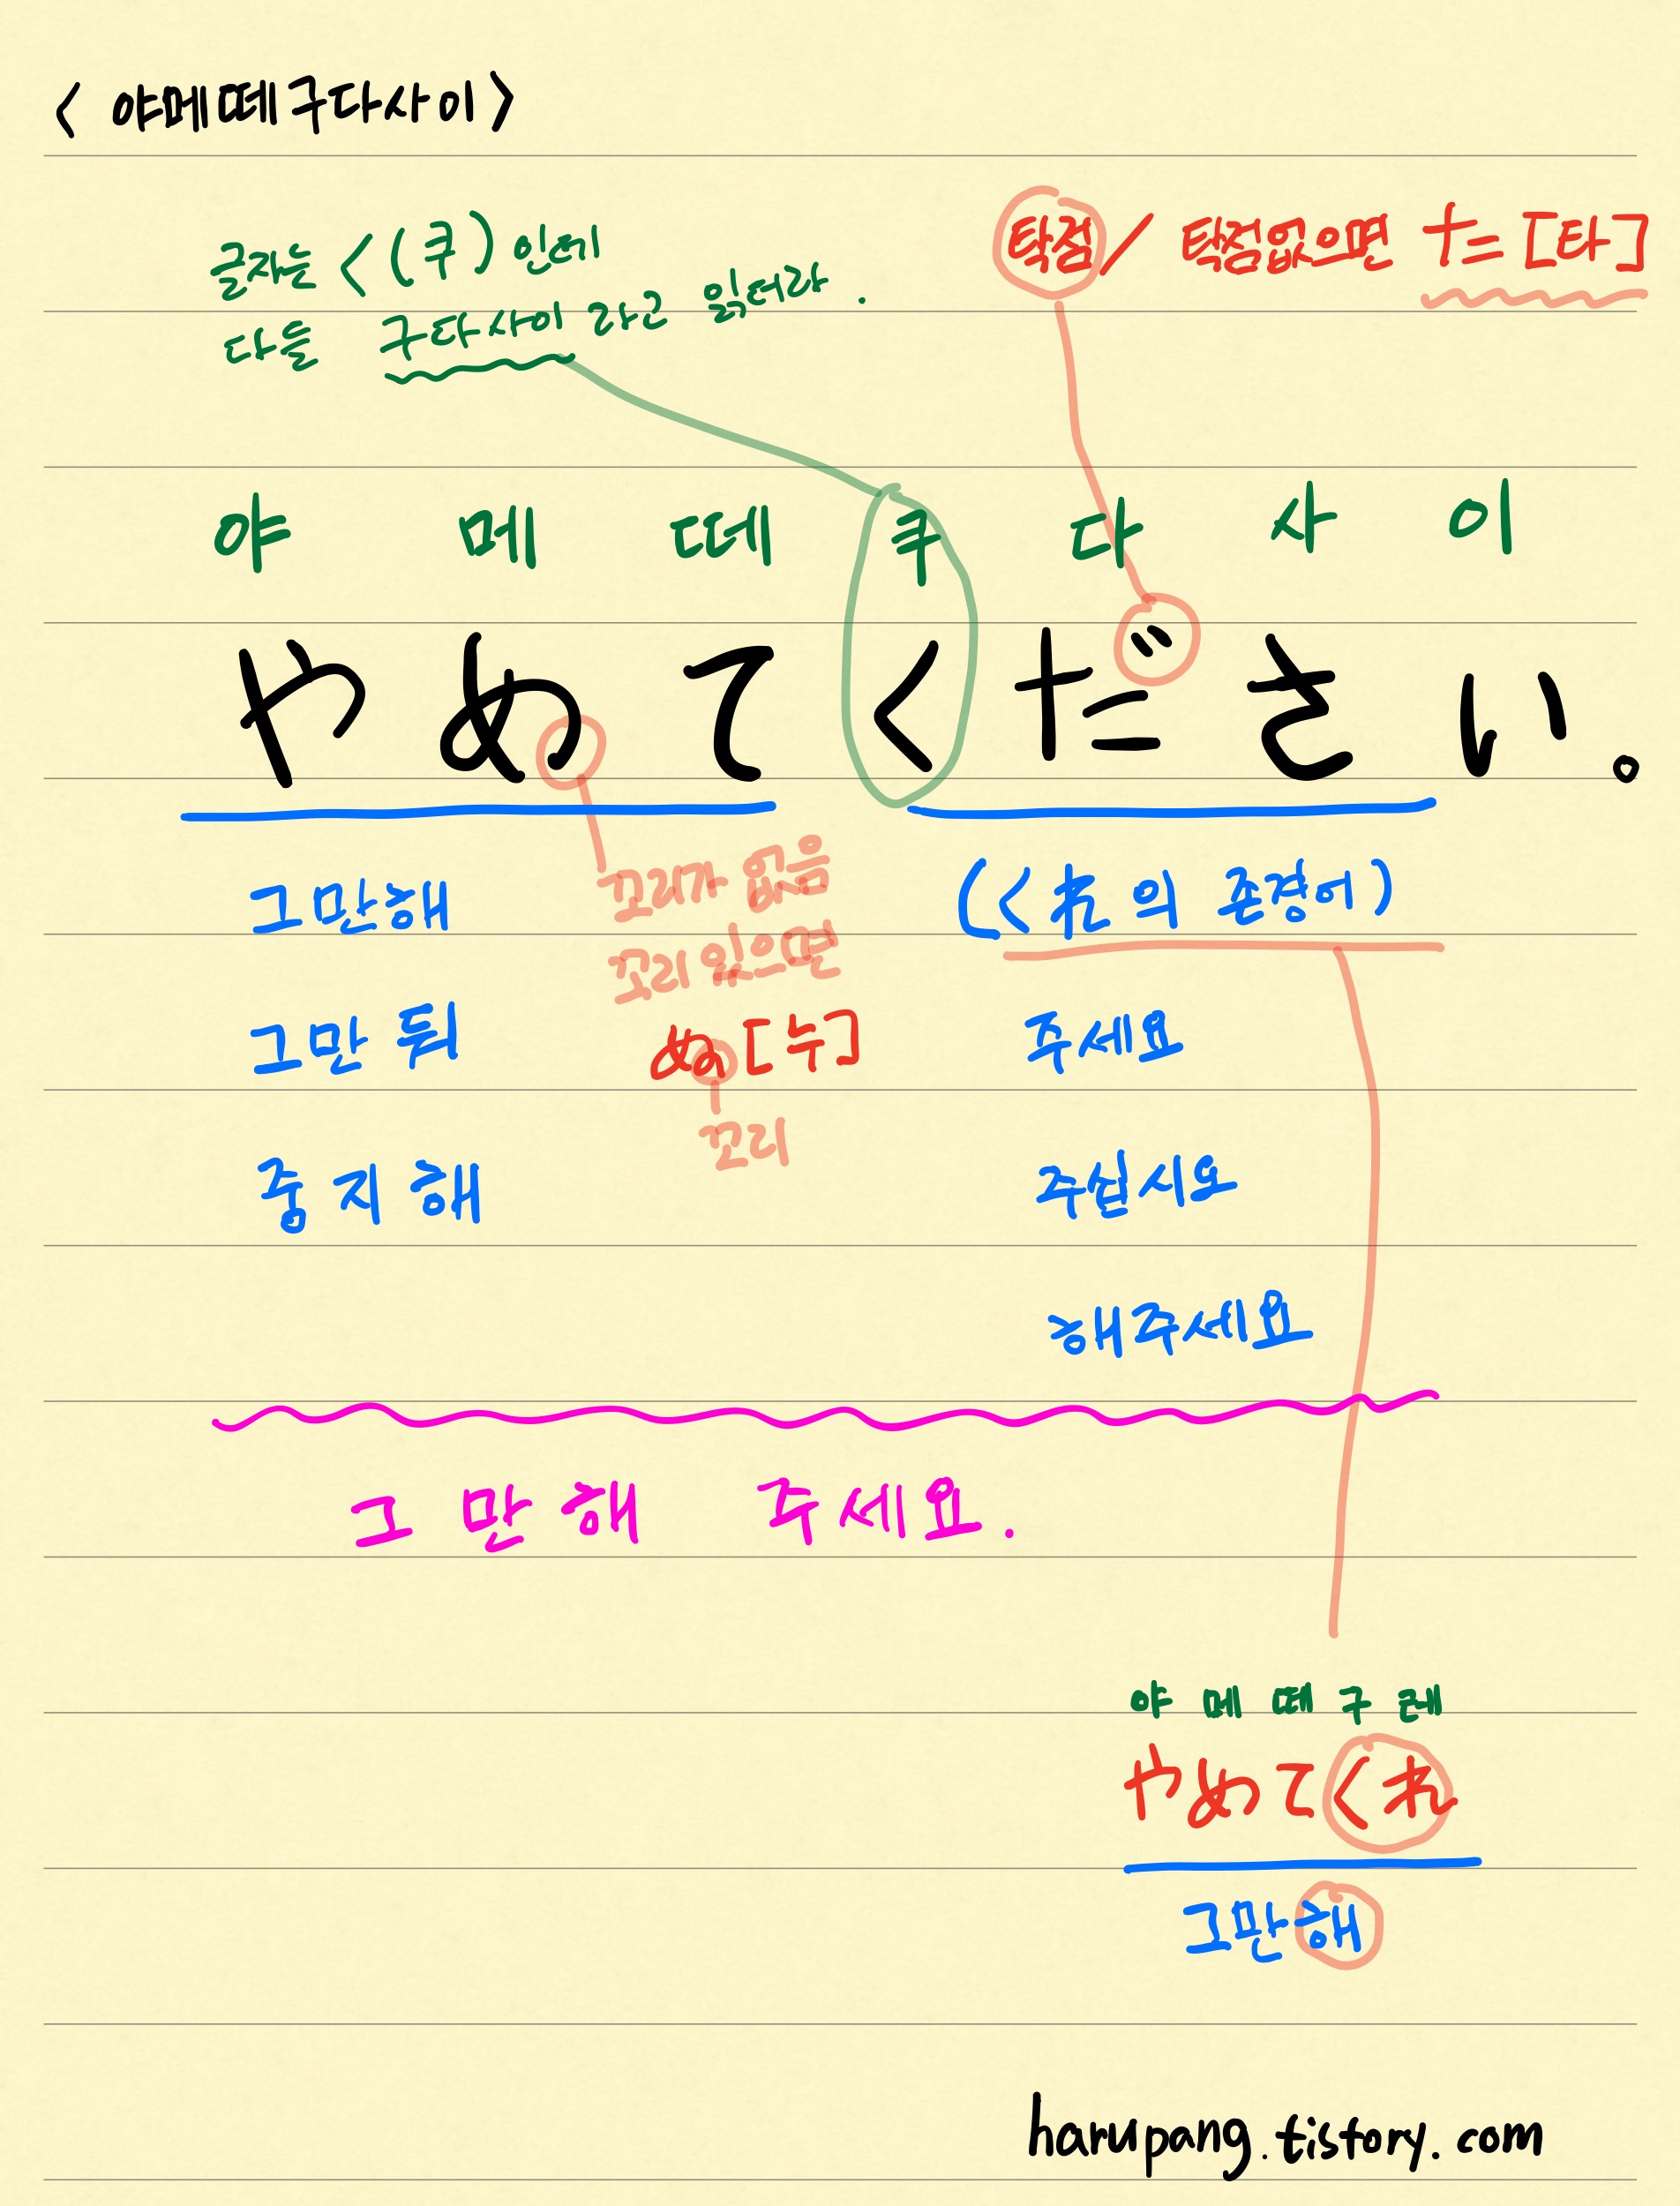 < 야메떼구다사이 >
글자는 く(쿠) 인데
다들 구다사이 라고 읽더라.
탁점 / 탁점없으면 た [타]
야 메 떼 쿠 다 사 이
やめてください。
그만해
꼬리가 없음
꼬리 있으면
(くれ의 존경어)
그만 둬
ぬ [누]
주세요
꼬리
중지해
주십시오
해주세요
그만해 주세요.
야메떼구레
やめてくれ
그만해
harupang.tistory.com